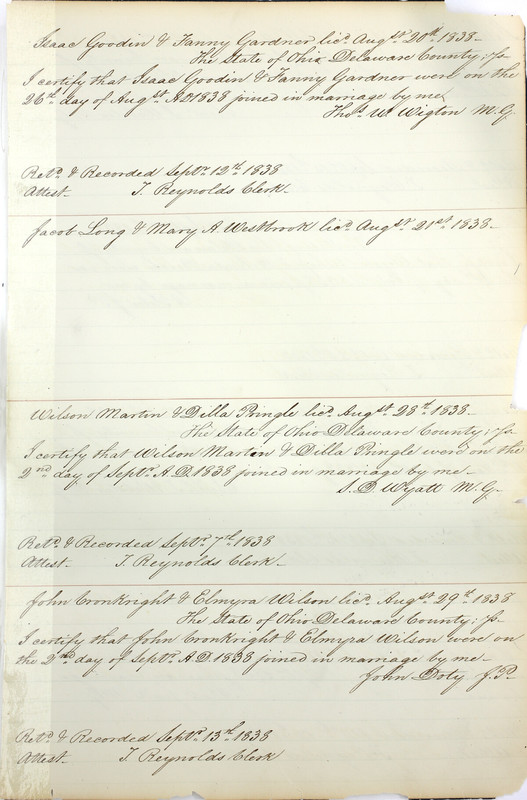 Isaac Goodin & Fanny Gardner licd. Augst. 20th. 1838
The State of Ohio Delaware County; Ss.
I certify that Isaac Goodin & Fanny Gardner were on the
26th. day of Augst. A.D. 1838 joined in marriage by me
Thos. W. Wigton M.G.
Retd. & Recorded Septr. 12th. 1838
Attest. T. Reynolds Clerk.
Jacob Long & Mary A. Westbrook licd. Augst. 21st. 1838
Wilson Martin & Della Pringle licd. Augst. 28th. 1838.
The State of Ohio Delaware County; Ss.
I certify that Wilson Martin & Della Pringle were on the
2nd day of Septr. A.D. 1838 joined in marriage by me
S. D. Wyatt M.G.
Retd. & Recorded Septr. 7th. 1838
Attest. T. Reynolds Clerk.
John Cronkright & Elmyra Wilson licd. Augst. 29th. 1838
The State of Ohio Delaware County; Ss.
I certify that John Cronkright & Elmyra Wilson were on
the 2nd day of Septr. A.D. 1838 joined in marriage by me
John Doty J.P.
Retd. & Recorded Septr. 13th. 1838
Attest. T. Reynolds Clerk